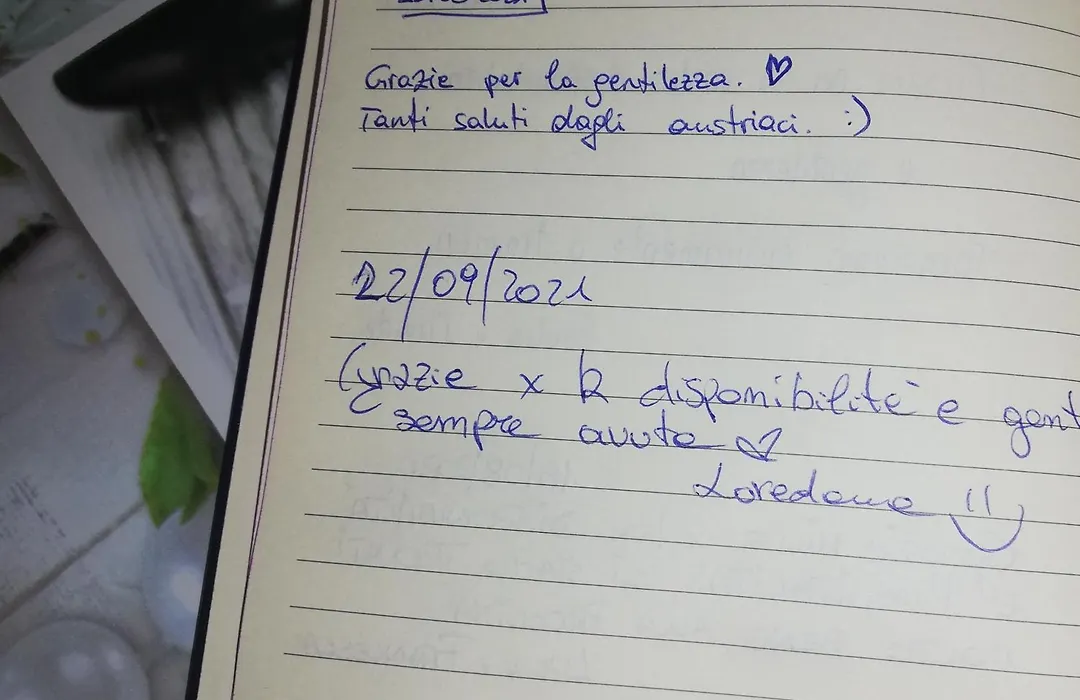 Grazie per la gentilezza. ♡
Tanti saluti dagli austriaci. :)
22/09/2021
Grazie x la disponibilità e gent
sempre avuta ♡
Loredana